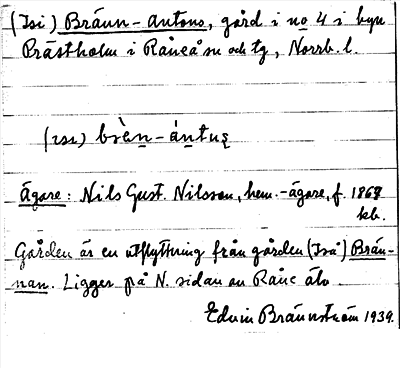 (Isi) Bränn-Antons, gård i no 4 i byn
Prästholm i Råneå sn och tg, Norrb. l.
(ɩsɩ) brèn-ántus̨
Ägare: Nils Gust. Nilsson, hem.-ägare, f. 1867
kb.
Gården är en utflyttning från gården (Iså) Brän-
nan. Ligger på N. sidan av Råne älv.
Edvin Brännström 1939.